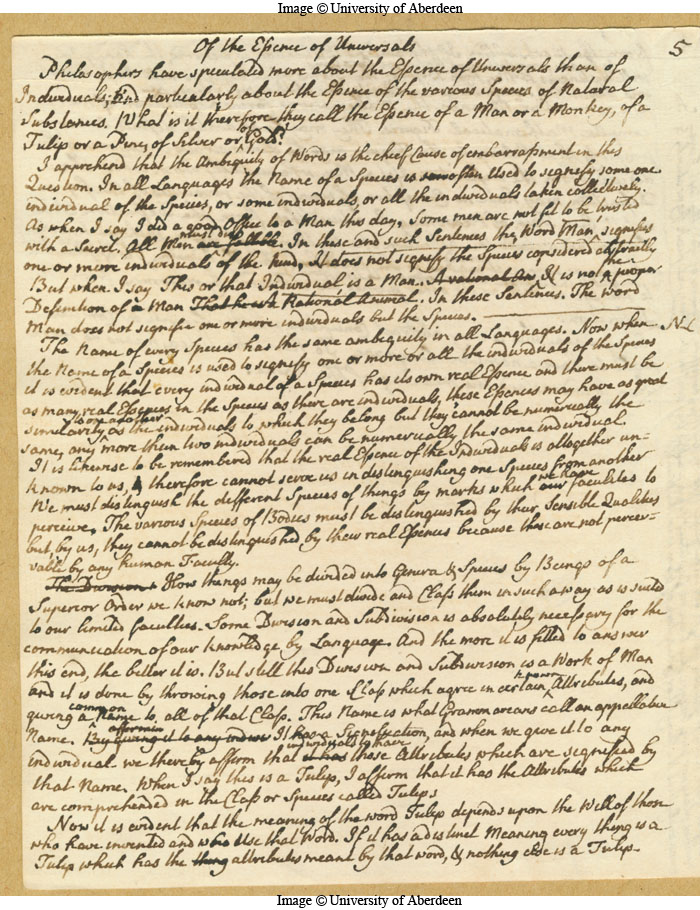 Image © University of Aberdeen
5
Of the Essence of Universals
Philosophers have speculated more about the Essence of Universals than of
Individuals; and particularly about the Essence of the various Species of Natural
Substances. What is it therefore they call the Essence of a Man or a Monkey, of a
Tulip or a Pine, of Silver or of Gold?
I apprehend that the Ambiguity of Words is the chief Cause of embarrassment in this
Question. In all Languages the Name of a Species is often Used to signify some one
individual of the Species, or some individuals, or all the individuals taken collectively.
As when I say I did a good Office to a Man this day, Some men are not fit to be trusted
with a Secret. All Men must die. In these and such Sentences the Word Man, signifies
one or more individuals of the kind, It does not signify the Species considered abstractly
But when I say This or that Individual is a Man. A rational An It is not the proper
Definition of a Man That he is a Rational Animal. In these Sentences. The word
Man does not signifie one or more individuals but the Species.
The Name of every Species has the same ambiguity in all Languages. Now when NL
the Name of a Species is used to signify one or more or all the individuals of the Species
it is evident that every individual of a Species has its own real Essence and there must be
as many real Essences in the Species as there are individuals, these Essences may have as great
similarity to one another as the individuals to which they belong but they cannot be numerically the
same, any more than two individuals can be numerically the same individual.
It is likewise to be remembered that the real Essence of the Individuals is altogether un-
known to us, & therefore cannot serve us in distinguishing one Species from another
We must distinguish the different Species of things by marks which we have faculties to
perceive. The various Species of Bodies must be distinguished by their Sensible Qualities
but, by us, they cannot be distinguished by their real Essences because these are not percei-
vable by any human Faculty.
The Division How things may be divided into Genera & Species by Beings of a
Superior Order we know not; but we must divide and Class them in such a way as is suited
to our limited faculties. Some Division and Subdivision is absolutely necessary for the
communication of our knowledge by Language. And the more it is fitted to answer
this end, the better it is. But still this Division and Subdivision is a Work of Man
and it is done by throwing those into one Class which agree in certain known Attributes, and
giving a common Name to, all of that Class. This Name is what Grammarians call an appellative
Name. By giving it to any It has a Signification, and when we give it to any
individual we thereby affirm that individual to have those Attributes which are signified by
that Name. When I say this is a Tulip, I affirm that it has the Attributes which
are comprehended in the Class or Species called Tulips
Now it is evident that the meaning of the word Tulip depends upon the Will of those
who have invented and who Use that Word. If it has a distinct Meaning every thing is a
Tulip which has the thing attributes meant by that word, & nothing else is a Tulip.
Image © University of Aberdeen